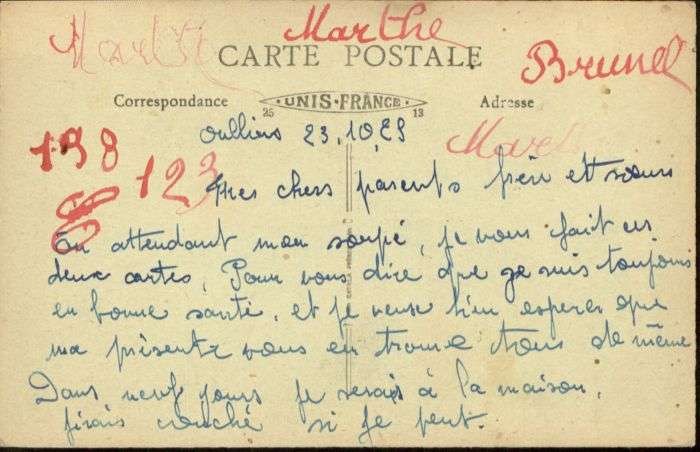 Marthe
Marthe
CARTE POSTALE
Brunel
Correspondance
25 UNIS-FRANCE 13
Adresse
Oulliens 23.10.29
Mart
198
123
Mes chers parents frère et sœurs
En attendant mon soupé, je vous fait ces
deux cartes, Pour vous dire que je suis toujours
en bonne santé, et je veux bien esperer que
ma présente vous en trouve tous de même
Dans neuf jours je serais à la maison,
firais couché si je peut.